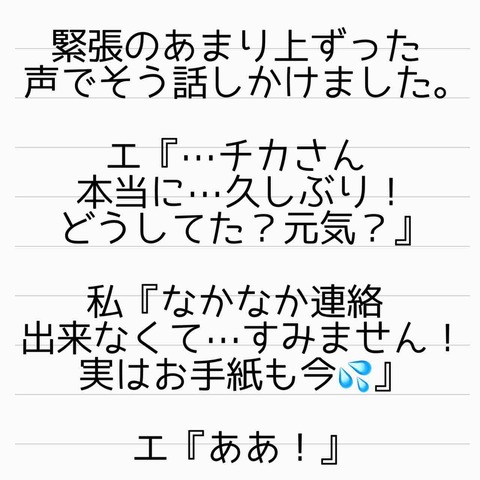 緊張のあまり上ずった
声でそう話しかけました。
エ『…チカさん
本当に…久しぶり！
どうしてた？元気？』
私『なかなか連絡
出来なくて…すみません！
実はお手紙も今💦』
エ『ああ！』